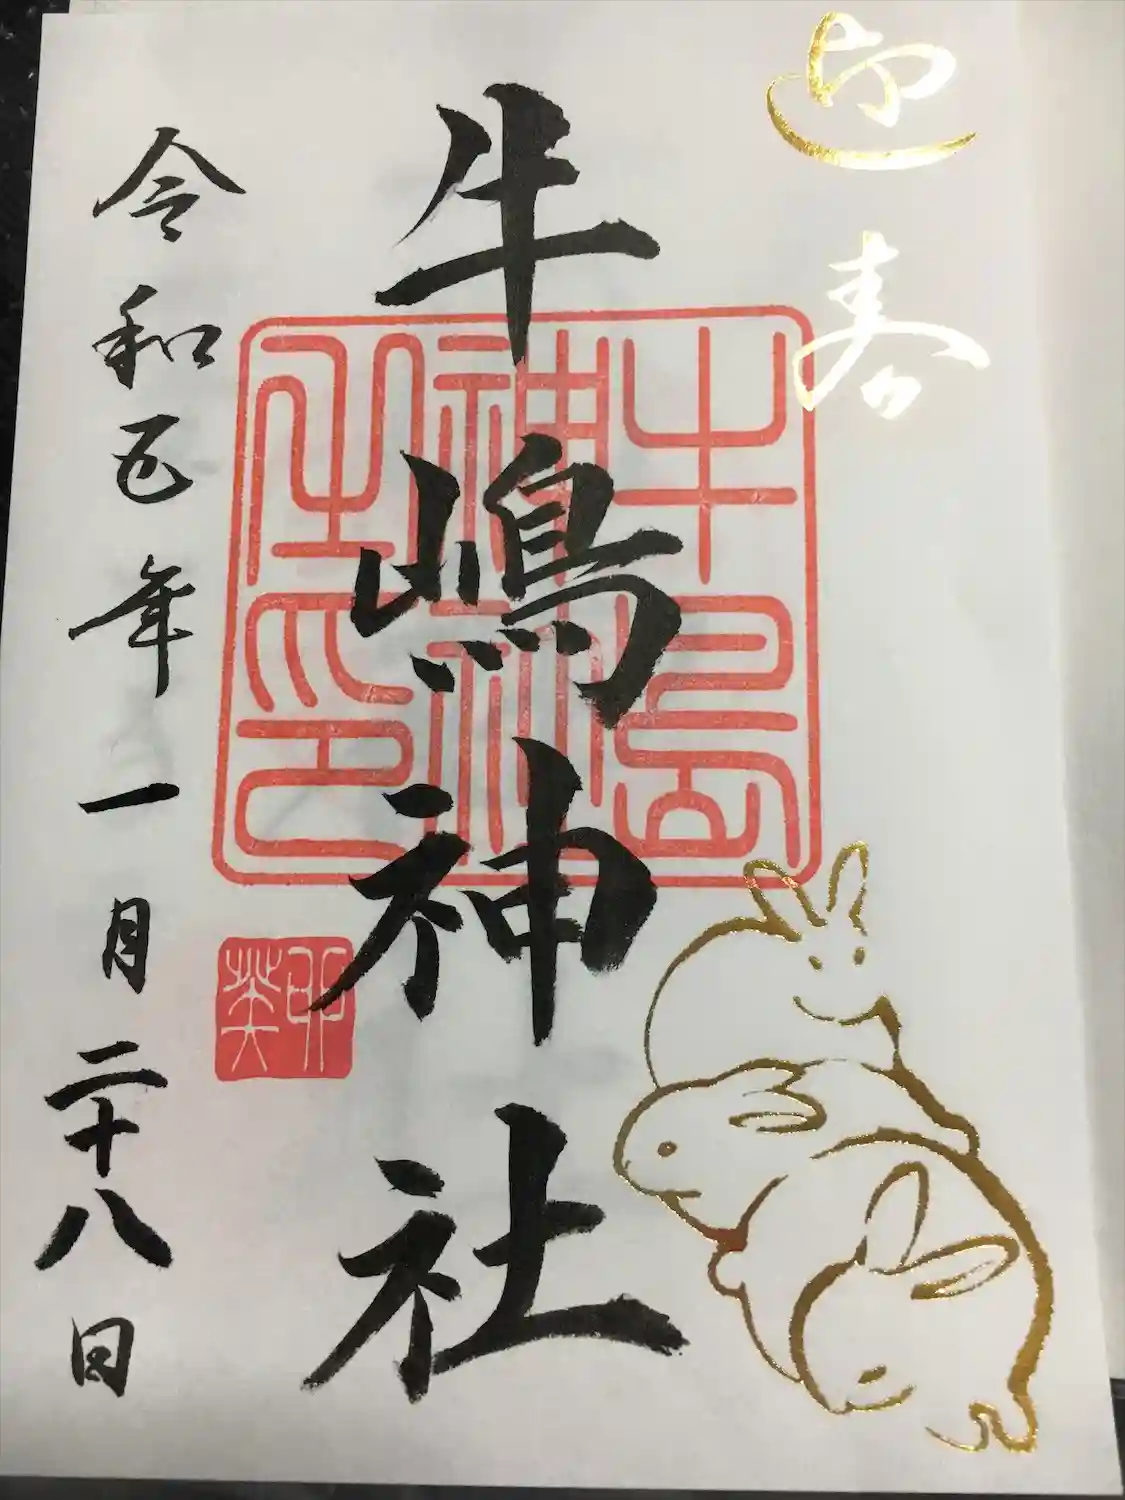 迎春
牛嶋神社
牛島
神社
印
令和五年一月二十八日
癸卯